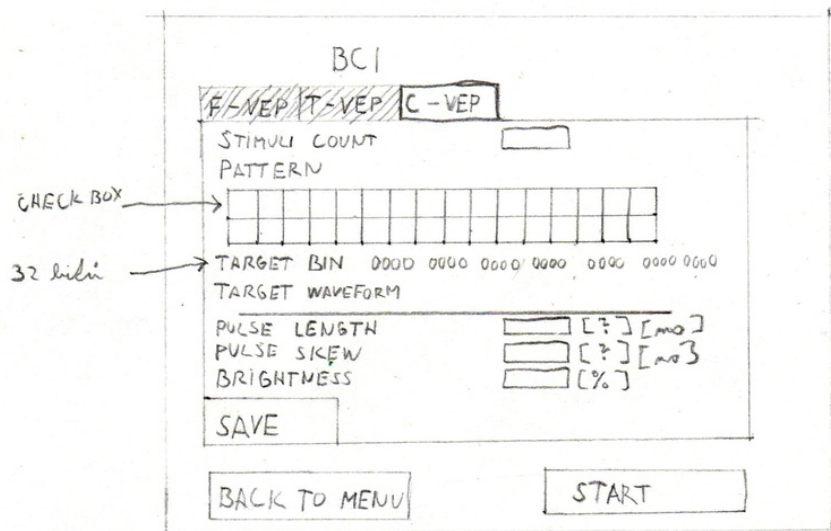 BCI
F-VEP T-VEP C-VEP
STIMULI COUNT
PATTERN
CHECK BOX
32 bitů TARGET BIN 0000 0000 0000 0000 0000 0000 0000
TARGET WAVEFORM
PULSE LENGTH [?]
PULSE SKEW [?]
BRIGHTNESS [%]
SAVE
BACK TO MENU START